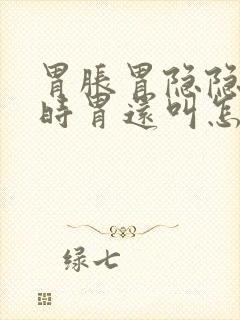 胃胀胃隐隐
时胃还叫怎
绿七